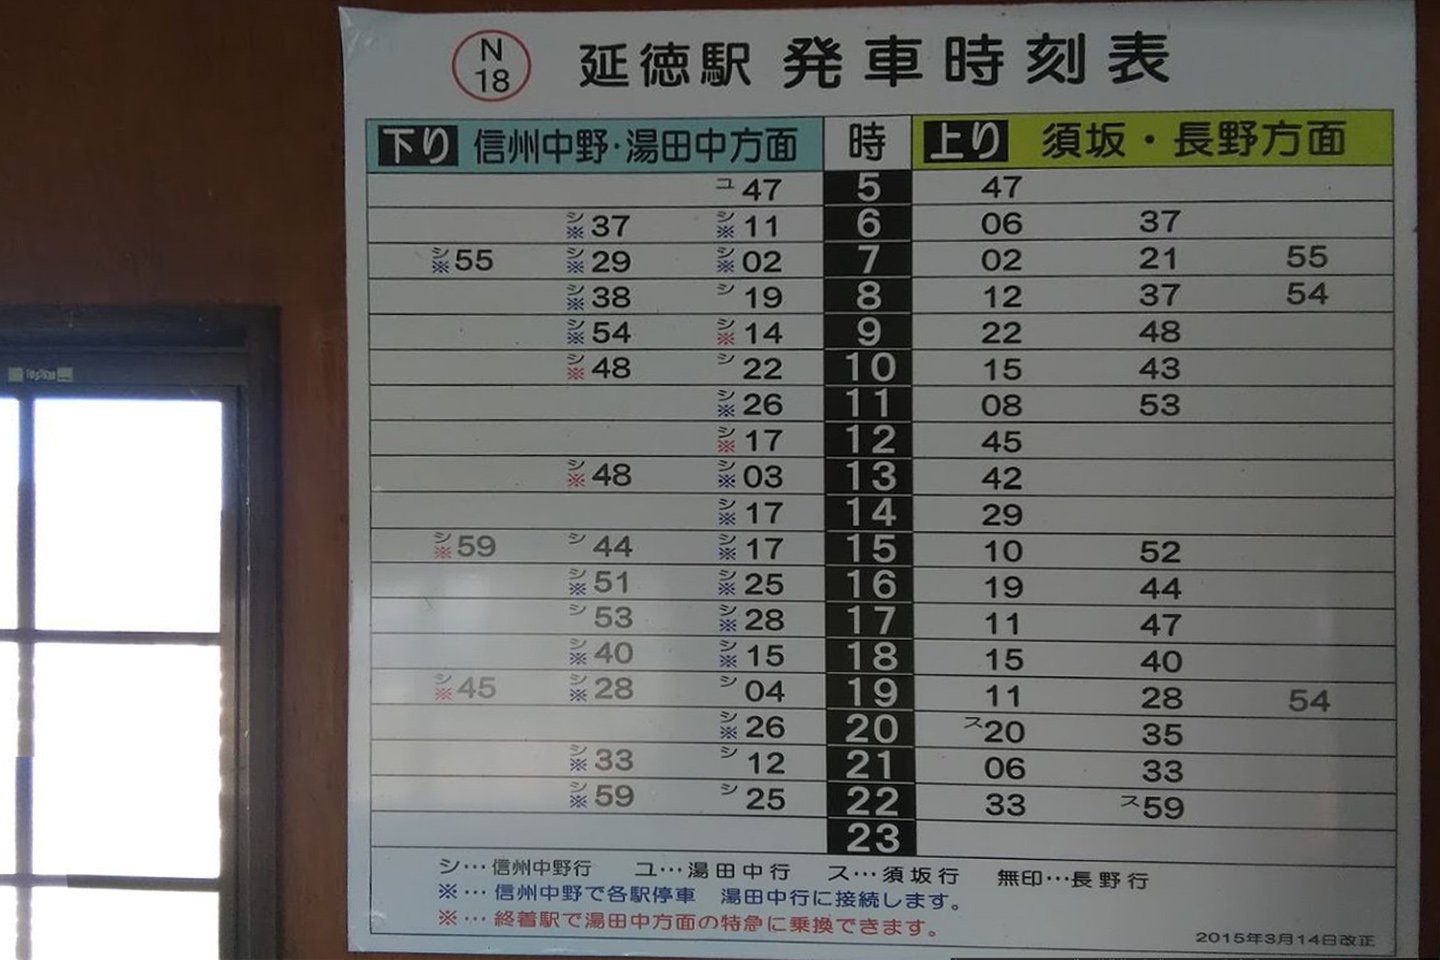 N
18
延徳駅 発車時刻表
下り 信州中野・湯田中方面 時 上り 須坂・長野方面
ユ47 5 47
シ※37 シ※11 6 06 37
シ※55 シ※29 シ※02 7 02 21 55
シ※38 シ19 8 12 37 54
シ※54 シ※14 9 22 48
シ※48 シ22 10 15 43
シ※26 11 08 53
シ※17 12 45
シ※48 シ※03 13 42
シ※17 14 29
シ※59 シ44 シ※17 15 10 52
シ※51 シ※25 16 19 44
シ53 シ※28 17 11 47
シ※40 シ※15 18 15 40
シ※45 シ※28 シ04 19 11 28 54
シ※26 20 ス20 35
シ※33 シ12 21 06 33
シ※59 シ25 22 33 ス59
23
シ…信州中野行 ユ…湯田中行 ス…須坂行 無印…長野行
※…信州中野で各駅停車 湯田中行に接続します。
※…終着駅で湯田中方面の特急に乗換できます。
2015年3月14日改正